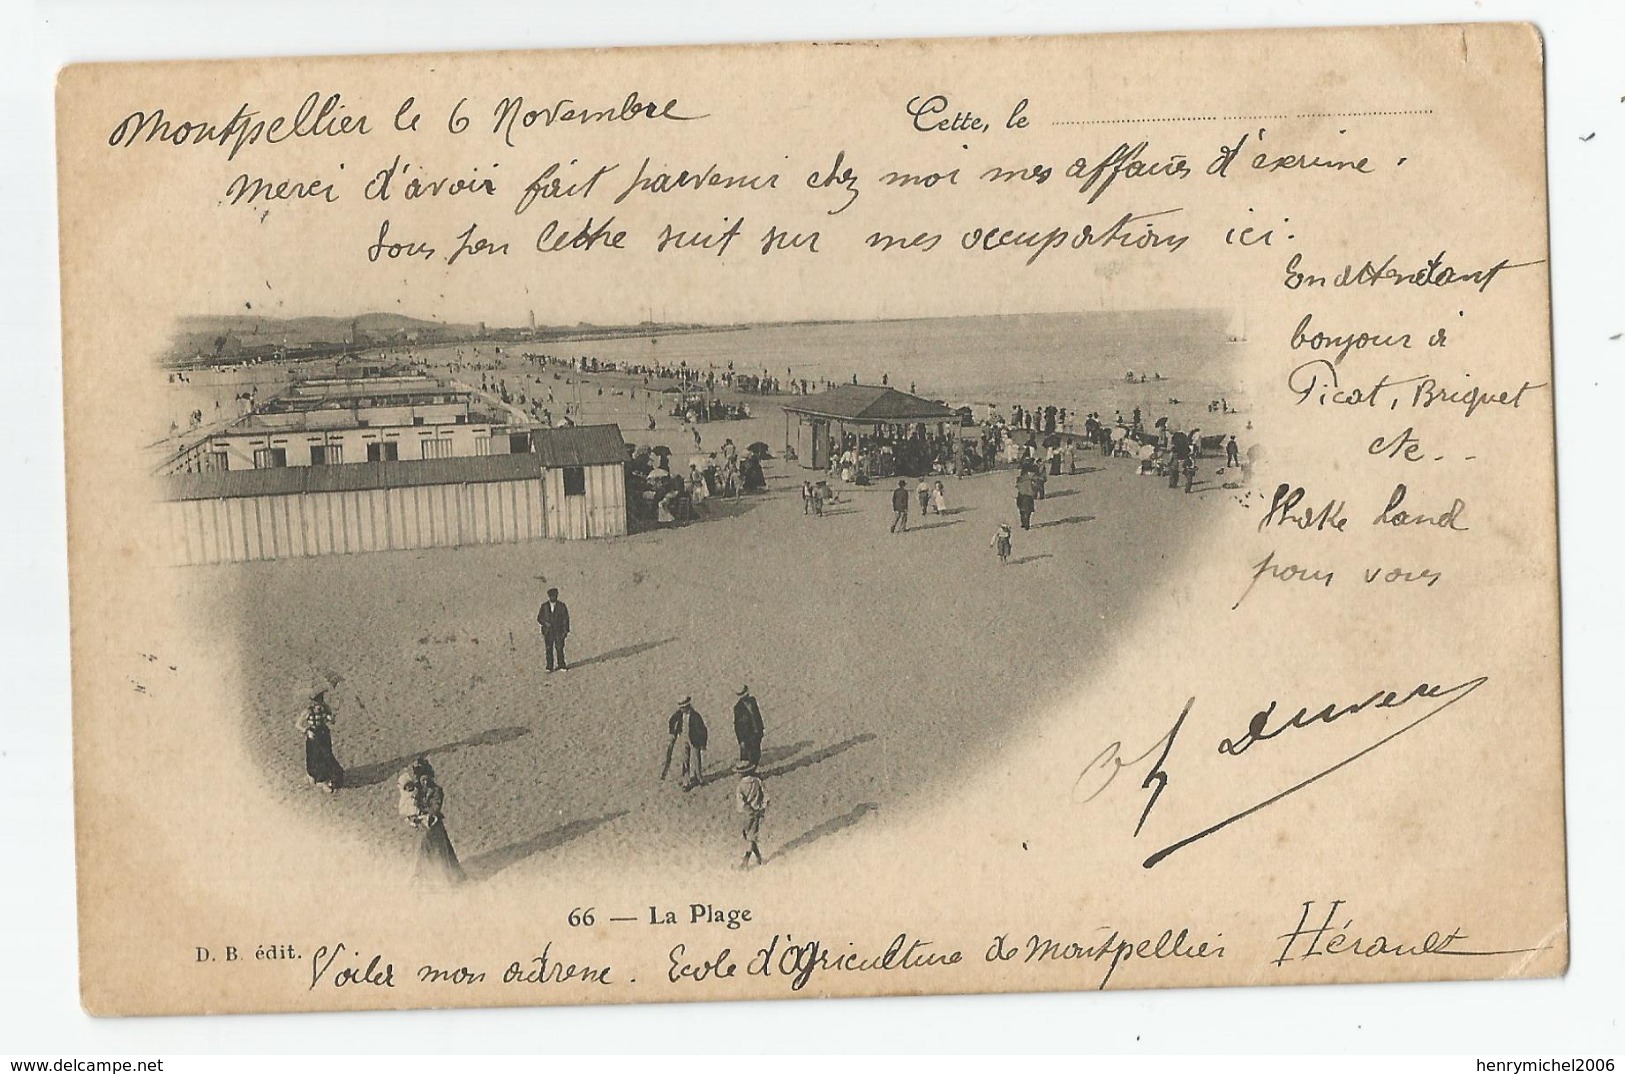 Montpellier le 6 Novembre
Cette, le
Merci d'avoir fait parvenir chez moi mes affaires d'exrime.
Sous peu lettre suit sur mes occupations ici.
En attendant
bonjour à
Picat, Briquet
etc..
Shake hand
pour vous
Ch Duver
66 — La Plage
D. B. édit.
Voila mon adresse. Ecole d'Agriculture de Montpellier Hérault
henrymichel2006